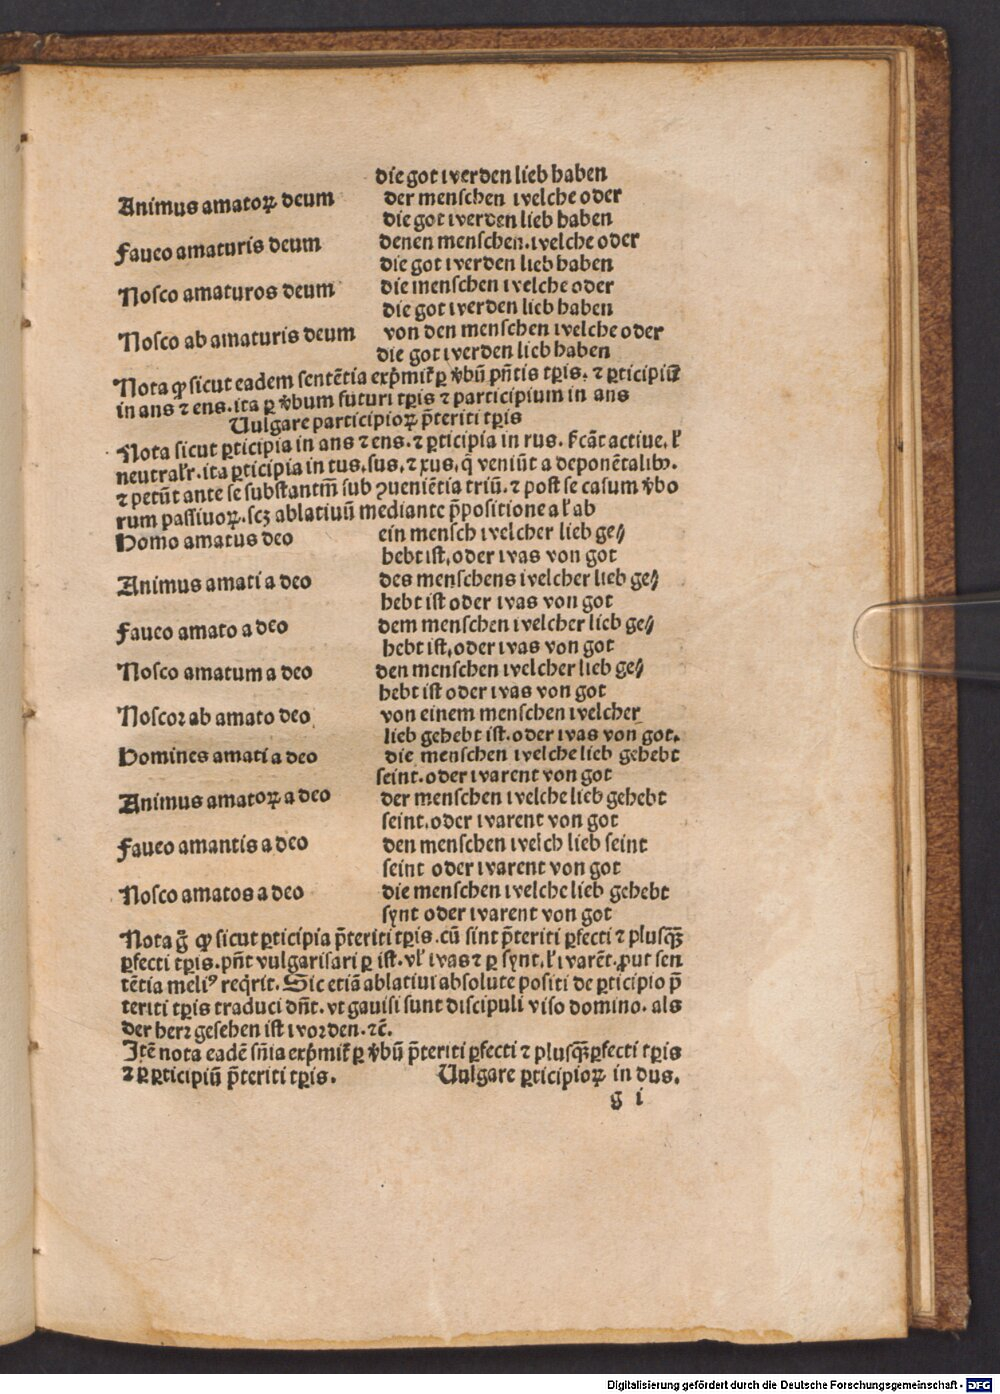 die got werden lieb haben
Animus amatoꝝ deum der menſchen welche oder
die got werden lieb haben
Faueo amaturis deum denen menſchen.welche oder
die got werden lieb haben
Noſco amaturos deum die menſchen welche oder
die got werden lieb haben
Noſco ab amaturis deum von den menſchen welche oder
die got werden lieb haben
Nota ꝙ ſicut eadem ſentētia exp̄mit᷑ ꝑ v̄bū pn̄tis tꝑis. ⁊ ꝑticipiū
in ans ⁊ ens.ita ꝑ v̄bum futuri tꝑis ⁊ participium in ans
Uulgare participioꝝ p̄teriti tꝑis
Nota ſicut ꝑticipia in ans ⁊ ens.⁊ ꝑticipia in rus. actiue.ł
neutralr̄.ita ꝑticipia in tus,ſus,⁊ xus,q̄ veniūt a deponētalibꝰ.
⁊ petūt ante ſe ſubſtantm̄ ſub ꝯueniētia triū.⁊ poſt ſe caſum v̄bo
rum paſſiuoꝝ.ſcꝫ ablatiuū mediante p̄poſitione a ł ab
Homo amatus deo ein menſch welcher lieb ge⸗
hebt iſt,oder was von got
Animus amati a deo des menſchens welcher lieb ge⸗
hebt iſt oder was von got
Faueo amato a deo dem menſchen welcher lieb ge⸗
hebt iſt,oder was von got
Noſco amatum a deo den menſchen welcher lieb ge⸗
hebt iſt oder was von got
Noſcoꝛ ab amato deo von einem menſchen welcher
lieb gehebt iſt.oder was von got.
Homines amati a deo die menſchen welche lieb gehebt
ſeint.oder warent von got
Animus amatoꝝ a deo der menſchen welche lieb gehebt
ſeint.oder warent von got
Faueo amantis a deo den menſchen welch lieb ſeint
ſeint oder warent von got
Noſco amatos a deo die menſchen welche lieb gehebt
ſynt oder warent von got
Nota ḡ ꝙ ſicut ꝑticipia p̄teriti tꝑis.cū ſint p̄teriti ꝑfecti ⁊ pluſqꝫ̄
ꝑfecti tꝑis.pn̄t vulgariſari ꝑ iſt.vł was ⁊ ꝑ ſynt.ł warēt.ꝓut ſen
tētia meliꝰ reqrit.Sic etiā ablatiui abſolute poſiti de ꝑticipio p̄
teriti tꝑis traduci dn̄t.vt gauiſi ſunt diſcipuli viſo domino.als
der herꝛ geſehen iſt woꝛden.⁊c̄.
Itē nota eadē ſn̄ia exp̄mit᷑ ꝑ v̄bū p̄teriti ꝑfecti ⁊ pluſqꝫ̄ꝑfecti tꝑis
⁊ ꝑ ꝑticipiū p̄teriti tꝑis. Uulgare ꝑticipioꝝ in dus.
g i
Digitalisierung gefördert durch die Deutsche Forschungsgemeinschaft - DFG